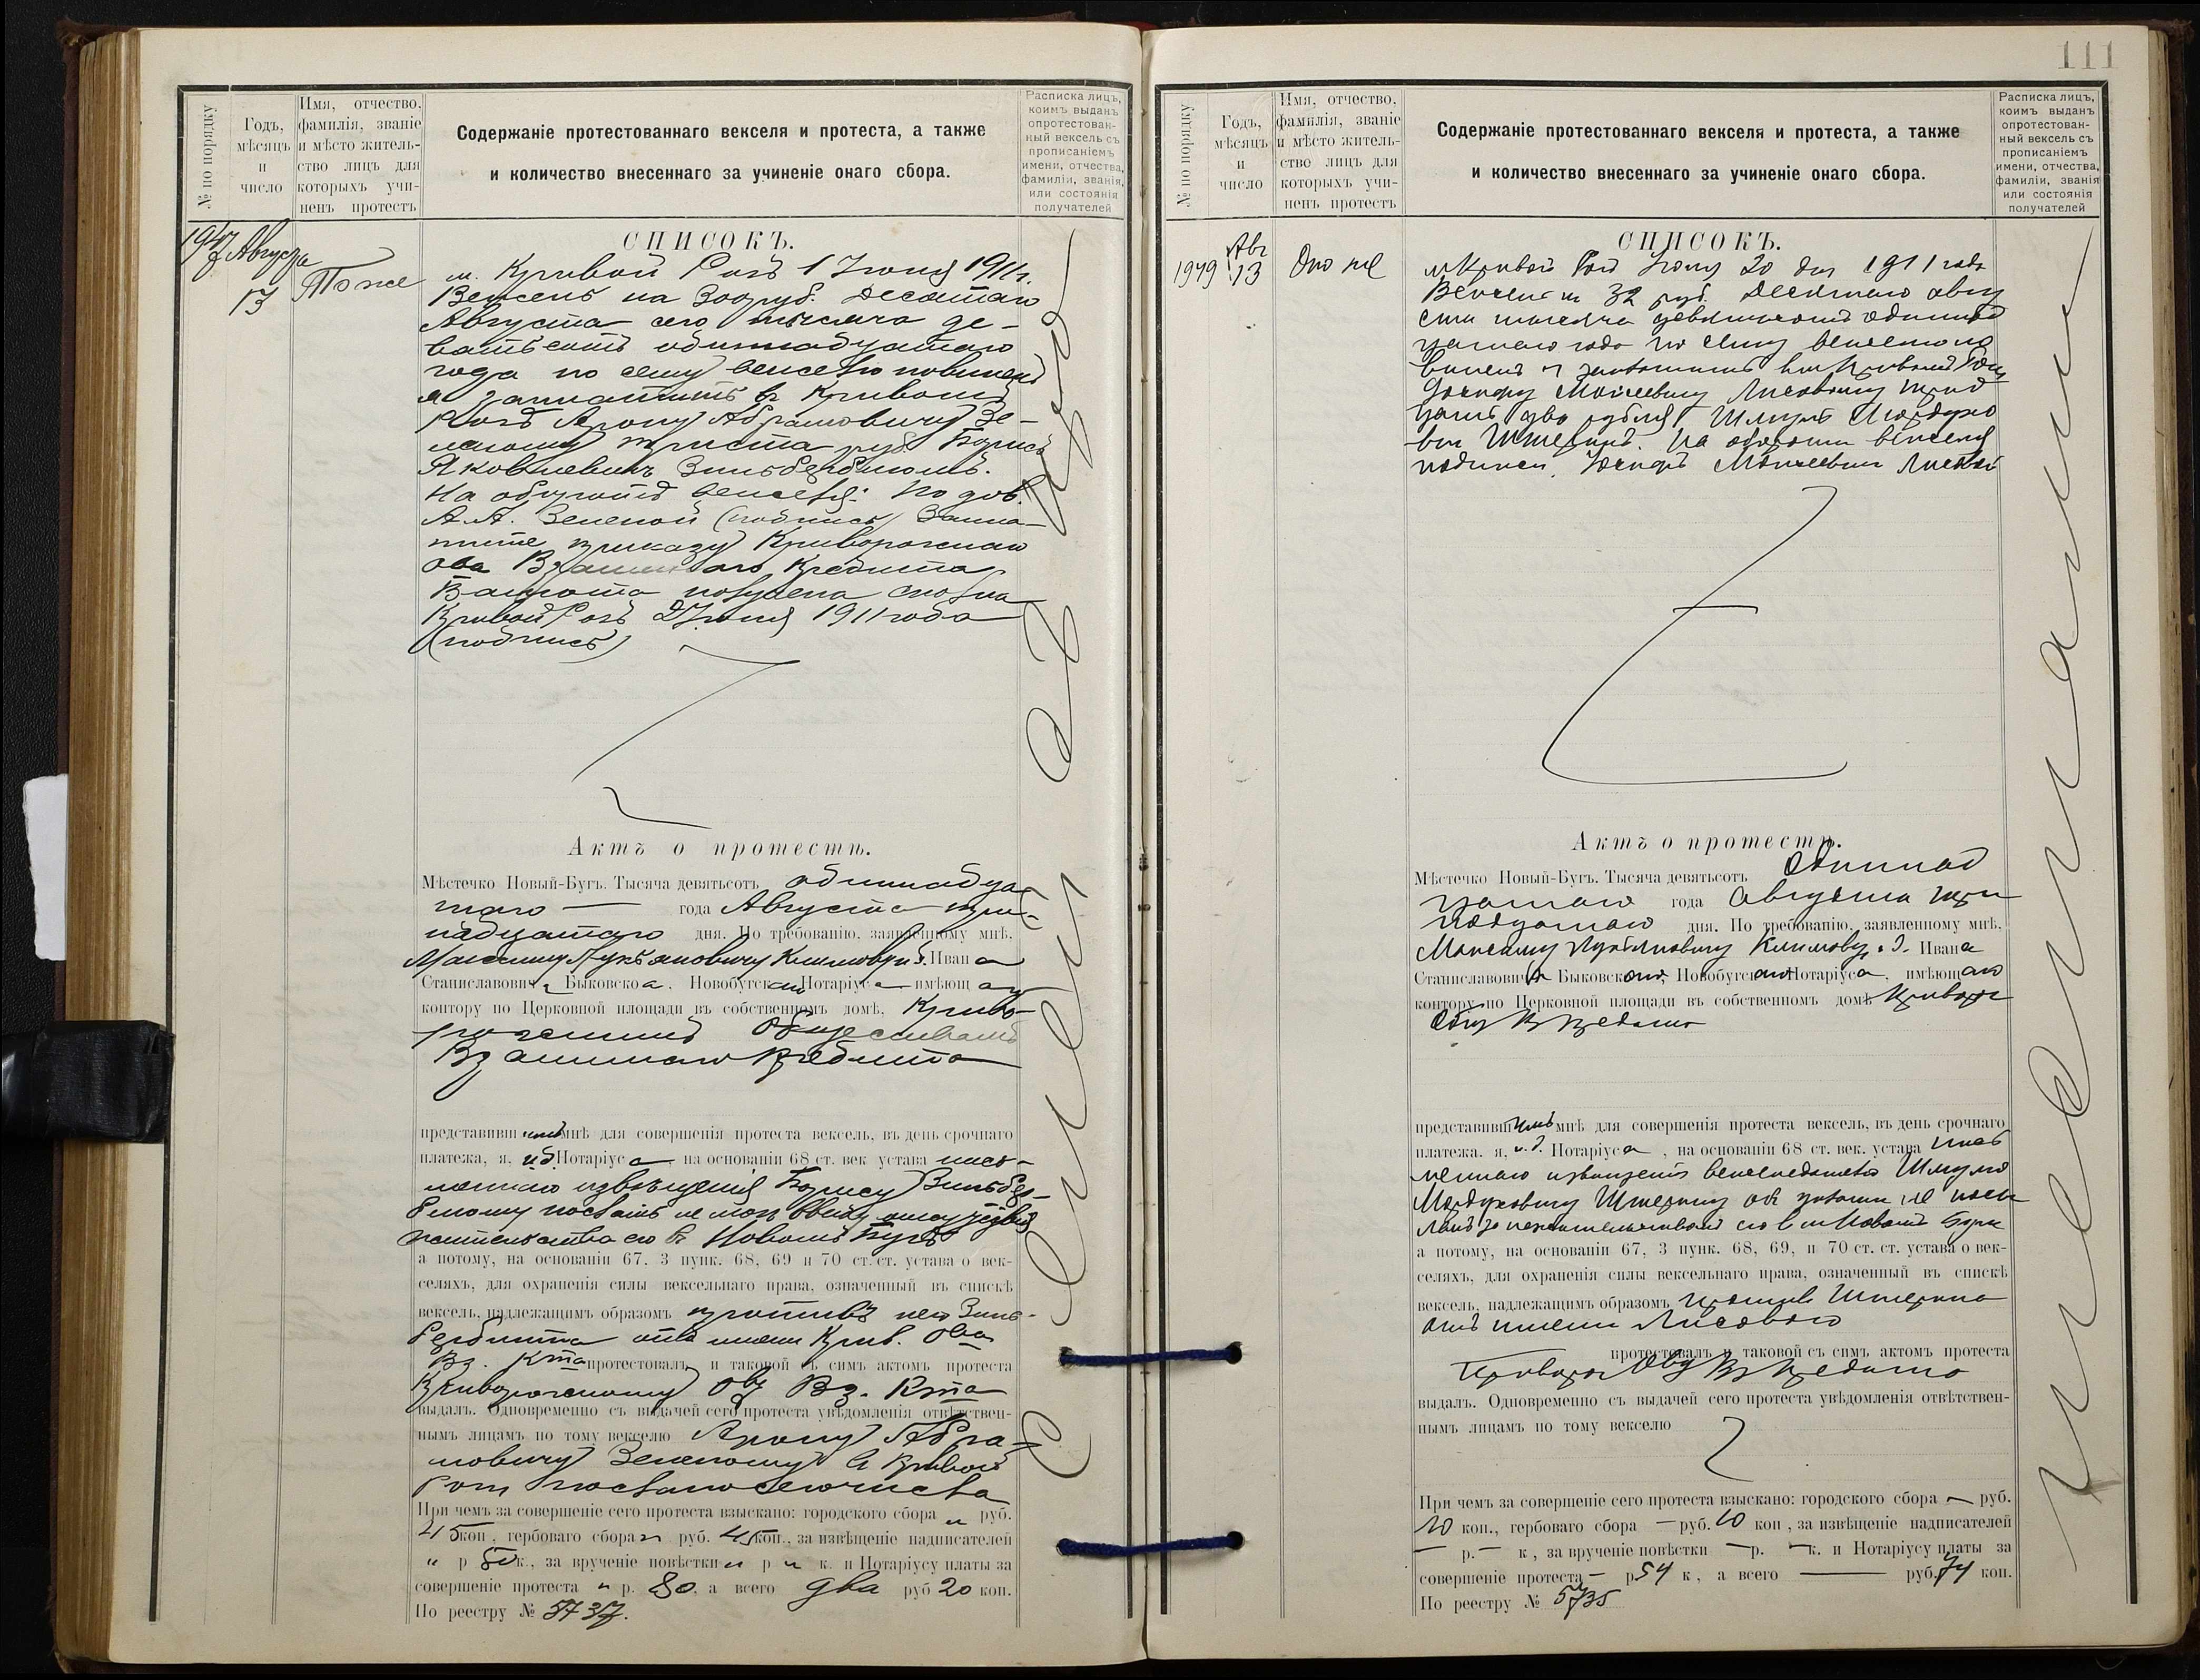 № по порядку
Годъ,
мѣсяцъ
и
число
Имя, отчество,
фамилія, званіе
и мѣсто житель-
ство лицъ для
которыхъ учи-
ненъ протестъ
Содержаніе протестованнаго векселя и протеста, а также
и количество внесеннаго за учиненіе онаго сбора.
Расписка лицъ,
коимъ выданъ
опротестован-
ный вексель съ
прописаніемъ
имени, отчества,
фамиліи, званія,
или состоянія
получателей
Августа
13
Тоже
СПИСОКЪ.
м. Кривой Рогъ 1 Іюня 1911г.
Вексель на 300 руб. Десятаго
Августа сего тысяча де-
вятьсотъ одиннадцатаго
года по сему векселю повиненъ
я заплатить въ Кривомъ
Рогѣ Арону Абрамовичу Зе-
леному триста руб. Борисъ
Яковлевичъ Зильбербимъ.
На оборотѣ векселя: По дов.
А. А. Зеленой (подпись) Запла-
тите приказу Криворожскаго
Ова Взаимнаго Кредита
Валюта получена сполна
Кривой Рогъ 2 Іюня 1911 года
(подпись)
Актъ о протестѣ.
Мѣстечко Новый-Бугъ. Тысяча девятьсотъ одиннадца-
таго — года Августа три-
надцатаго дня. По требованію, заявленному мнѣ,
Максиму Лукьяновичу Климову и.д. Ивана
Станиславовича Быковскоа, Новобугскаго Нотаріуса имѣющаго
контору по Церковной площади въ собственномъ домѣ, Криво-
рожскимъ Обществомъ
Взаимнаго Кредита
представившимъ мнѣ для совершенія протеста вексель, въ день срочнаго
платежа, я, и.д. Нотаріуса, на основаніи 68 ст. век устава пись-
меннаго извѣщенія Борису Зильбер-
биному послать не могъ ввиду
жительства его въ Новомъ Бугѣ
а потому, на основаніи 67, 3 пунк. 68, 69 и 70 ст. ст. устава о век-
селяхъ, для охраненія силы вексельнаго права, означенный въ спискѣ
вексель, надлежащимъ образомъ противъ него Зиль-
отъ имени Крив. Ова
Вз. Кта протестовалъ и таковой съ симъ актомъ протеста
Криворожскому Обу Вз. Кта
выдалъ. Одновременно съ выдачей сего протеста увѣдомленія отвѣтствен-
нымъ лицамъ по тому векселю Арону Абра-
мовичу Зеленому въ Кривой
Рогъ
При чемъ за совершеніе сего протеста взыскано: городского сбора „ руб.
45 коп., гербоваго сбора „ руб. 45 коп., за извѣщеніе надписателей
„ р 50 к., за врученіе повѣстки „ р „ к. и Нотаріусу платы за
совершеніе протеста „ р. 80, а всего два руб 20 коп.
По реестру № 5737.
111
№ по порядку
Годъ,
мѣсяцъ
и
число
Имя, отчество,
фамилія, званіе
и мѣсто житель-
ство лицъ для
которыхъ учи-
ненъ протестъ
Содержаніе протестованнаго векселя и протеста, а также
и количество внесеннаго за учиненіе онаго сбора.
Расписка лицъ,
коимъ выданъ
опротестован-
ный вексель съ
прописаніемъ
имени, отчества,
фамиліи, званія
или состоянія
получателей
1979
Авг
13
Оно же
СПИСОКЪ.
м Кривой Рогъ Іюня 20 дня 1911 года
Вексель на 32 руб. Десятаго авгу
ста тысяча девятьсотъ одиннад
цатаго года по сему векселю по
виненъ я заплатить въ м Кривомъ Рогѣ
Іосифу Моисеевичу Лисовому трид
цать два рубля Шмуль Мордухо
вич Штеринъ. На оборотѣ векселя
подписи. Іосифъ Моисеевичъ Лисовой
Актъ о протестѣ.
Мѣстечко Новый-Бугъ. Тысяча девятьсотъ Одиннад
цатаго года августа три
надцатаго дня. По требованію, заявленному мнѣ,
Максиму Лукьяновичу Климову и.д. Ивана
Станиславовича Быковскаго, Новобугскаго Нотаріуса, имѣющаго
контору по Церковной площади въ собственномъ домѣ Криворож
Обу В Кредита
представившимъ мнѣ для совершенія протеста вексель, въ день срочнаго
платежа. я, и.д. Нотаріуса, на основаніи 68 ст. век. устава пись
меннаго извѣщенія векселедателю Шмулю
Мордуховичу Штерину не посы
въ м Новомъ Бугѣ
а потому, на основаніи 67, 3 пунк. 68, 69, и 70 ст. ст. устава о век-
селяхъ, для охраненія силы вексельнаго права, означенный въ спискѣ
вексель, надлежащимъ образомъ противъ Штерина
отъ имени Лисового
протестовалъ и таковой съ симъ актомъ протеста
Криворож Обу Вз Кредита
выдалъ. Одновременно съ выдачей сего протеста увѣдомленія отвѣтствен-
нымъ лицамъ по тому векселю
При чемъ за совершеніе сего протеста взыскано: городского сбора — руб.
10 коп., гербоваго сбора — руб. 10 коп, за извѣщеніе надписателей
— р. — к, за врученіе повѣстки — р. — к. и Нотаріусу платы за
совершеніе протеста — р 54 к, а всего — руб. 74 коп.
По реестру № 5735